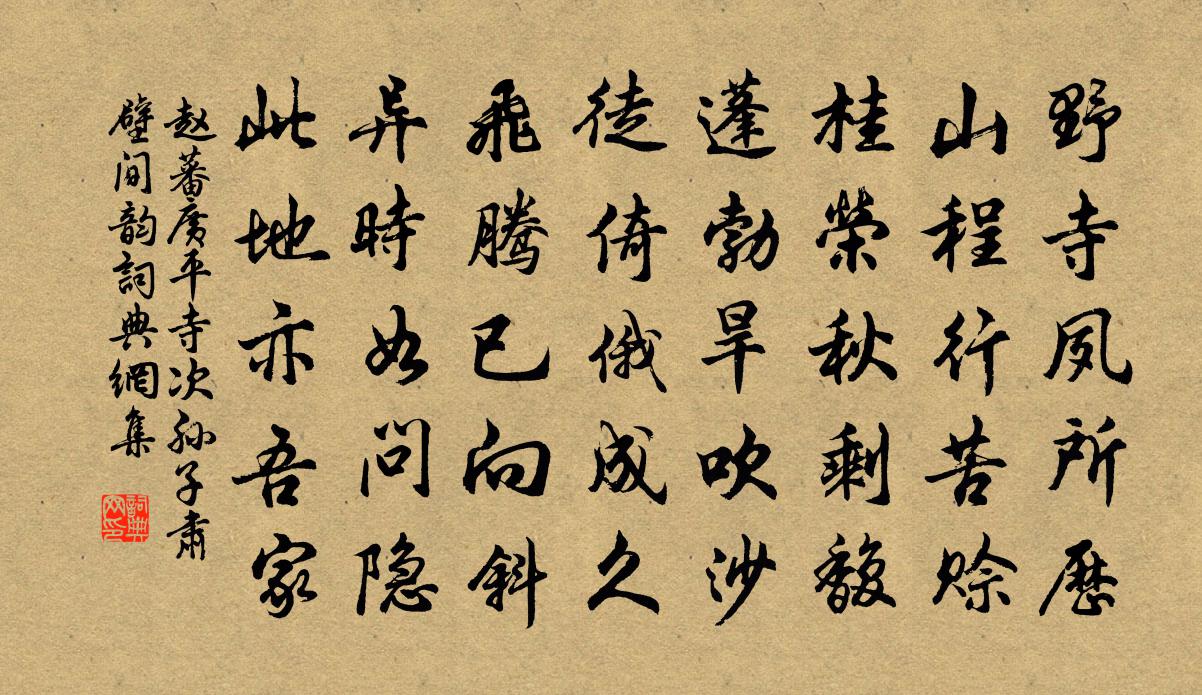 野寺夙所歷
山程行苦賒
桂榮秋剩馥
蓬勃旱吹沙
徒倚俄成久
飛騰已向斜
异時如问隐
此地亦吾家
赵蕃廣平寺次孙子肅
壁间韵詞典網集
詞典
网印